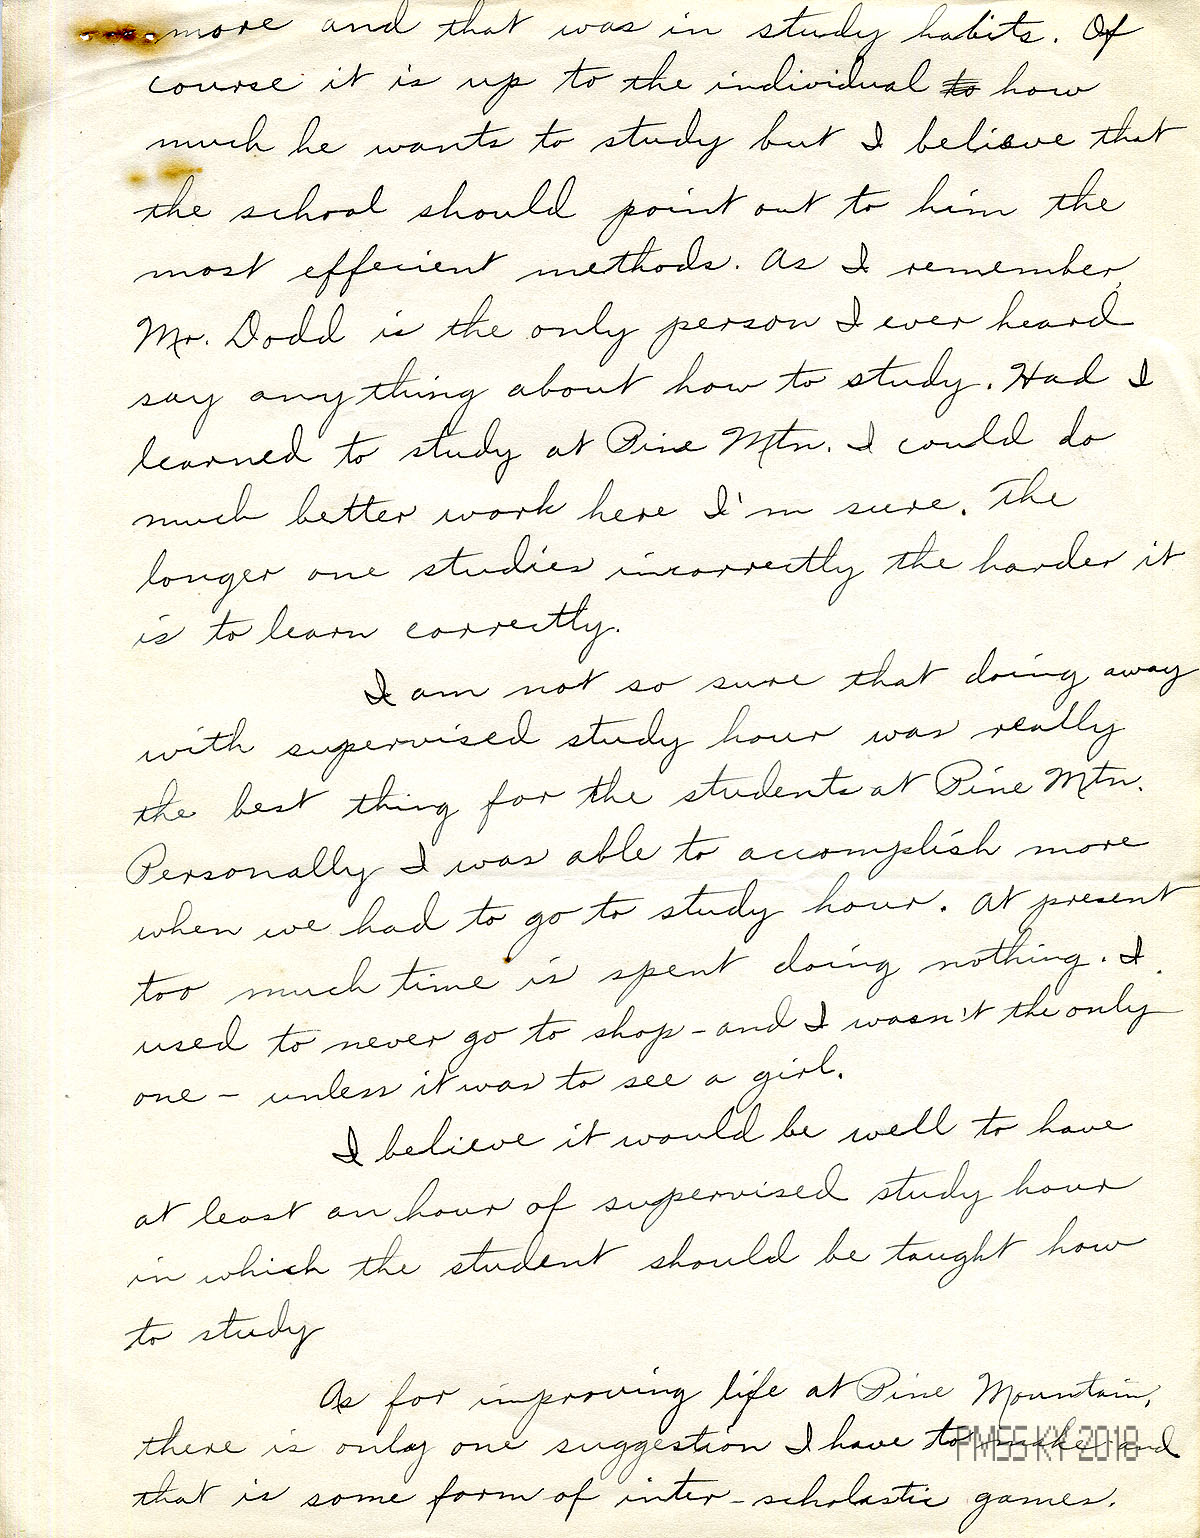 more and that was in study habits. Of
course it is up to the individual to how
much he wants to study but I believe that
the school should point out to him the
most effecient methods. As I remember,
Mr. Dodd is the only person I ever heard
say anything about how to study. Had I
learned to study at Pine Mtn. I could do
much better work here I'm sure. The
longer one studies incorrectly the harder it
is to learn correctly.
I am not so sure that doing away
with supervised study hour was really
the best thing for the students at Pine Mtn.
Personally I was able to accomplish more
when we had to go to study hour. At present
too much time is spent doing nothing. I
used to never go to shop - and I wasn't the only
one - unless it was to see a girl.
I believe it would be well to have
at least an hour of supervised study hour
in which the student should be taught how
to study
As for improving life at Pine Mountain,
there is only one suggestion I have to make and
PMSS KY 2018
that is some form of inter-scholastic games.